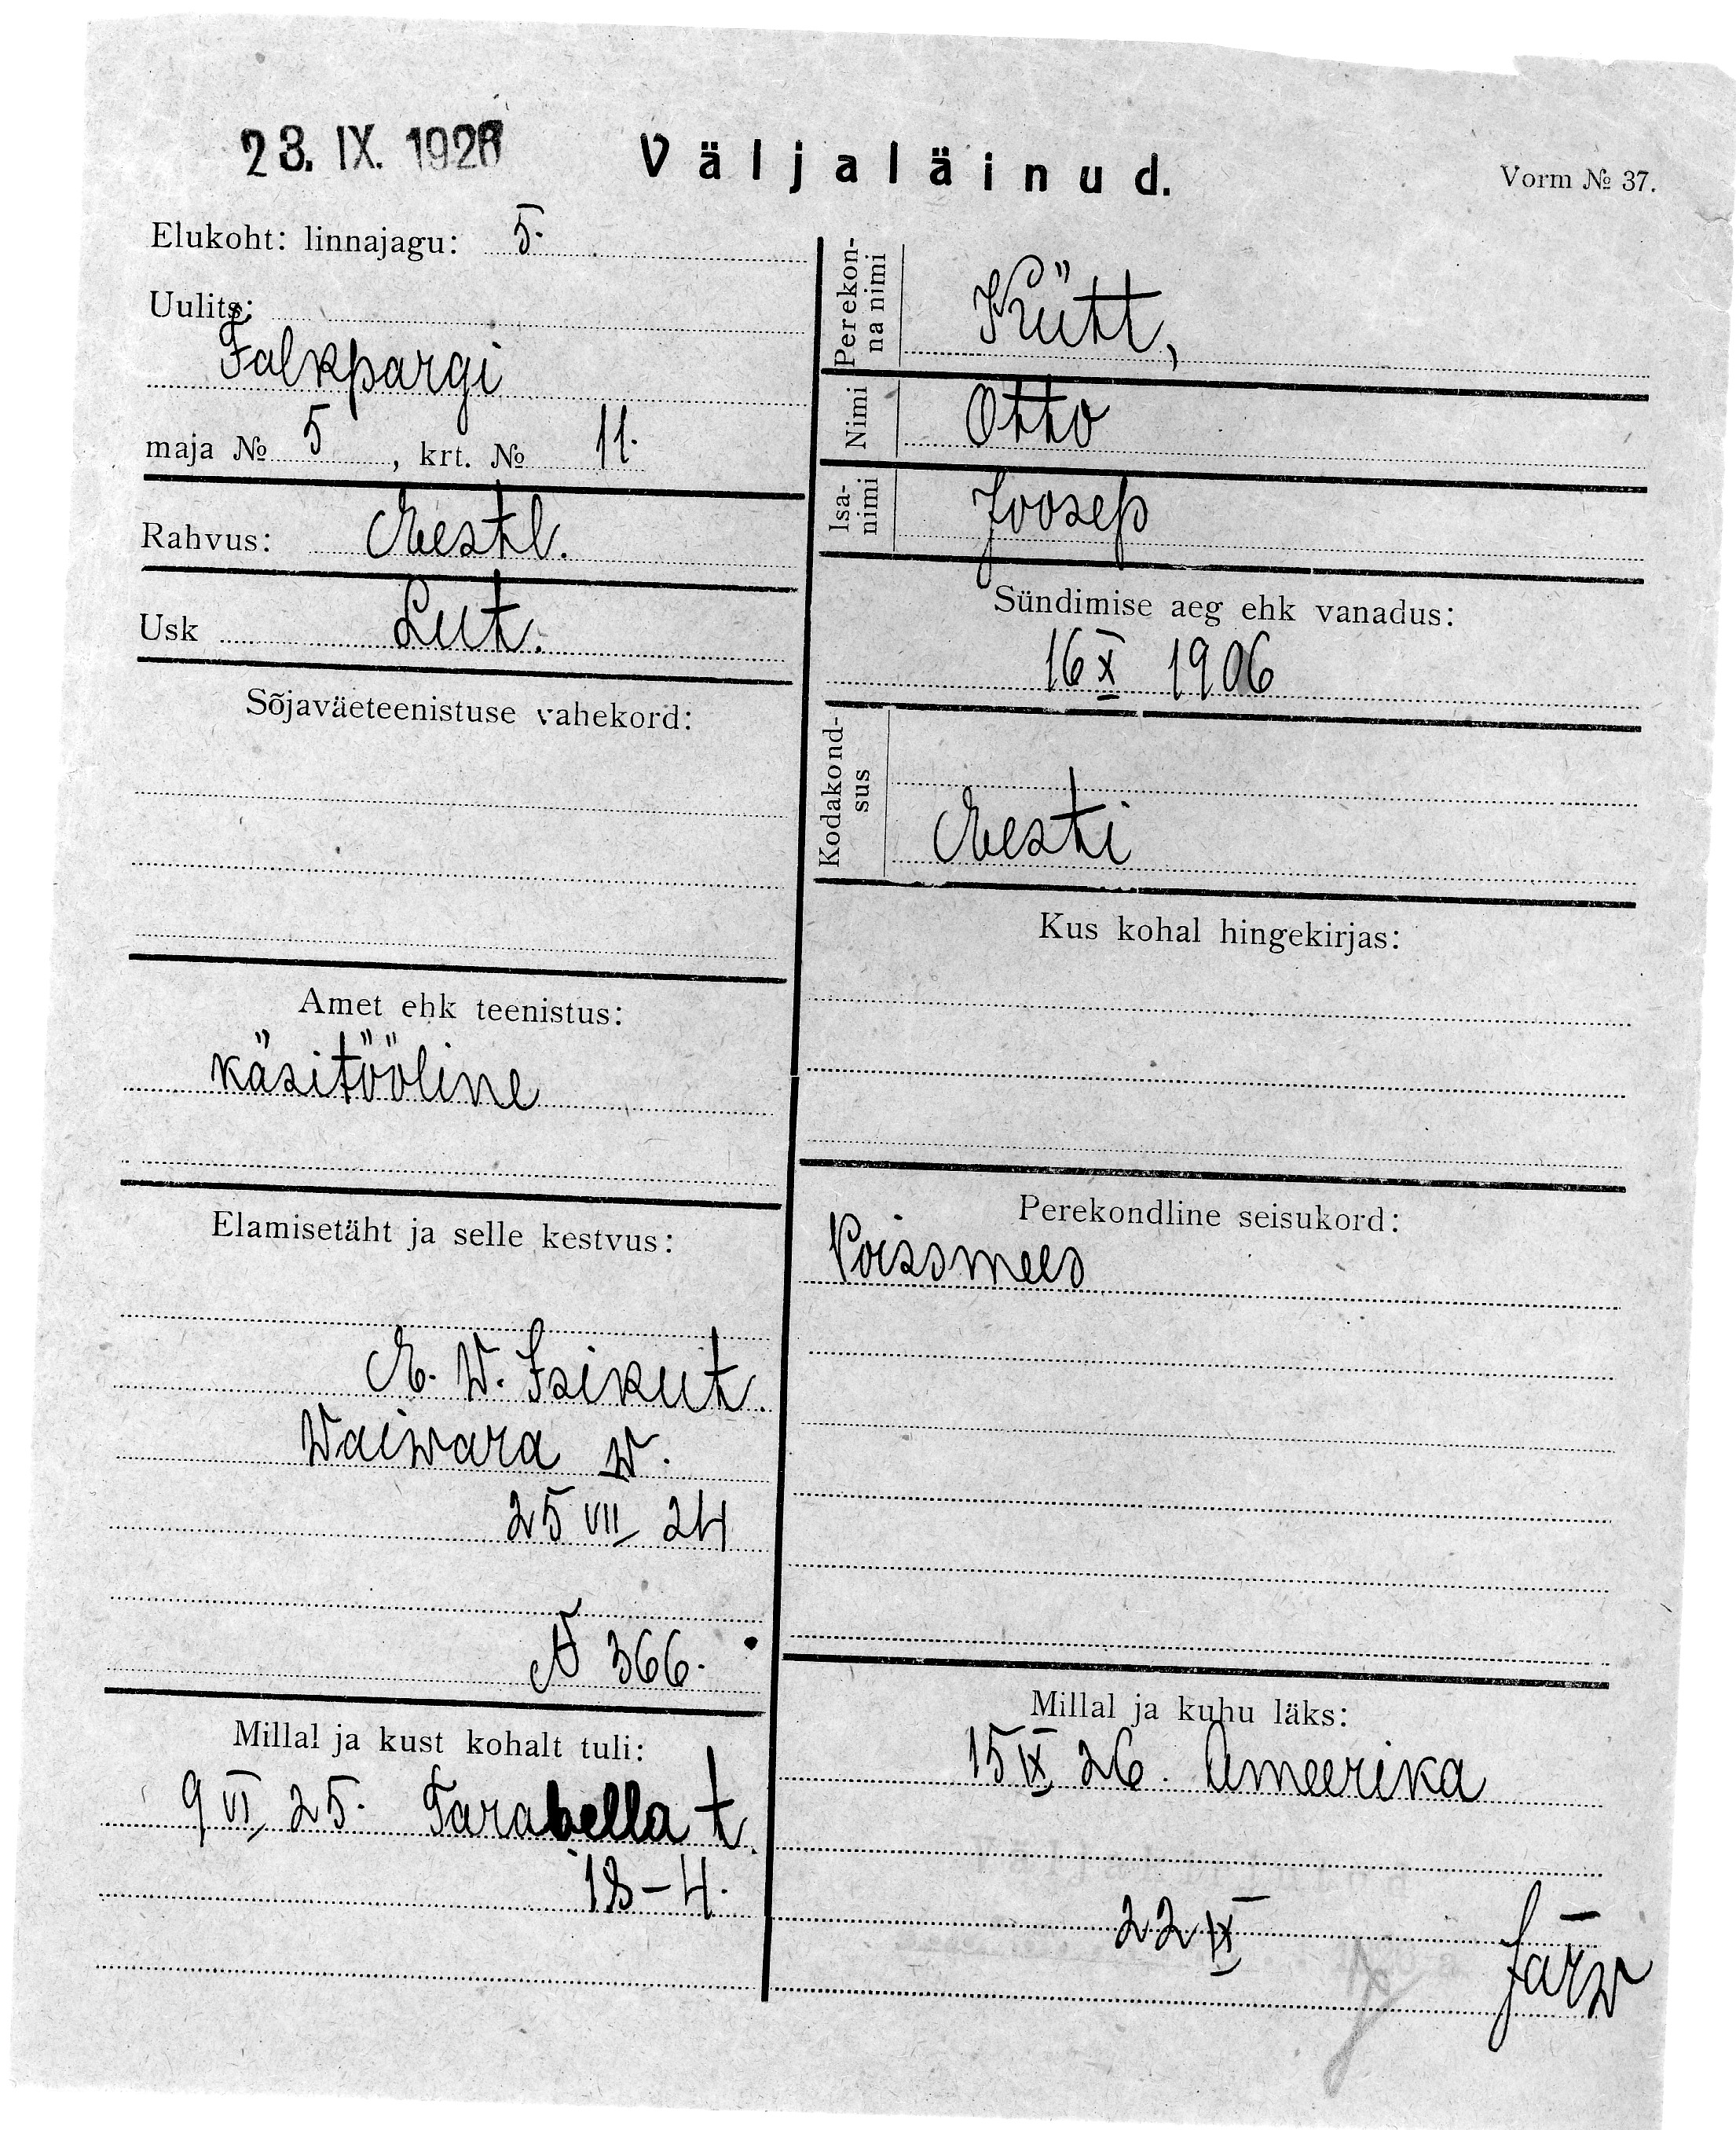 23. IX. 1926
Väljaläinud.
Vorm № 37.
Elukoht: linnajagu: 5.
Uulits:
Falkpargi
maja № 5, krt. № 11.
Rahvus: Eestl.
Usk Lut.
Sõjaväeteenistuse vahekord:
Amet ehk teenistus:
käsitööline
Elamisetäht ja selle kestvus:
E. W. Isikut.
Waiwara w.
25 VII 24
№ 366.
Millal ja kust kohalt tuli:
9 VI 25. Tarabella t.
18-4.
Perekon-
na nimi
Kütt,
Nimi Otto
Isa-
nimi
Joosep
Sündimise aeg ehk vanadus:
16 X 1906
Kodakond-
sus
Eesti
Kus kohal hingekirjas:
Perekondline seisukord:
Poissmees
Millal ja kuhu läks:
15 IX 26. Ameerika
22 IX
Järw